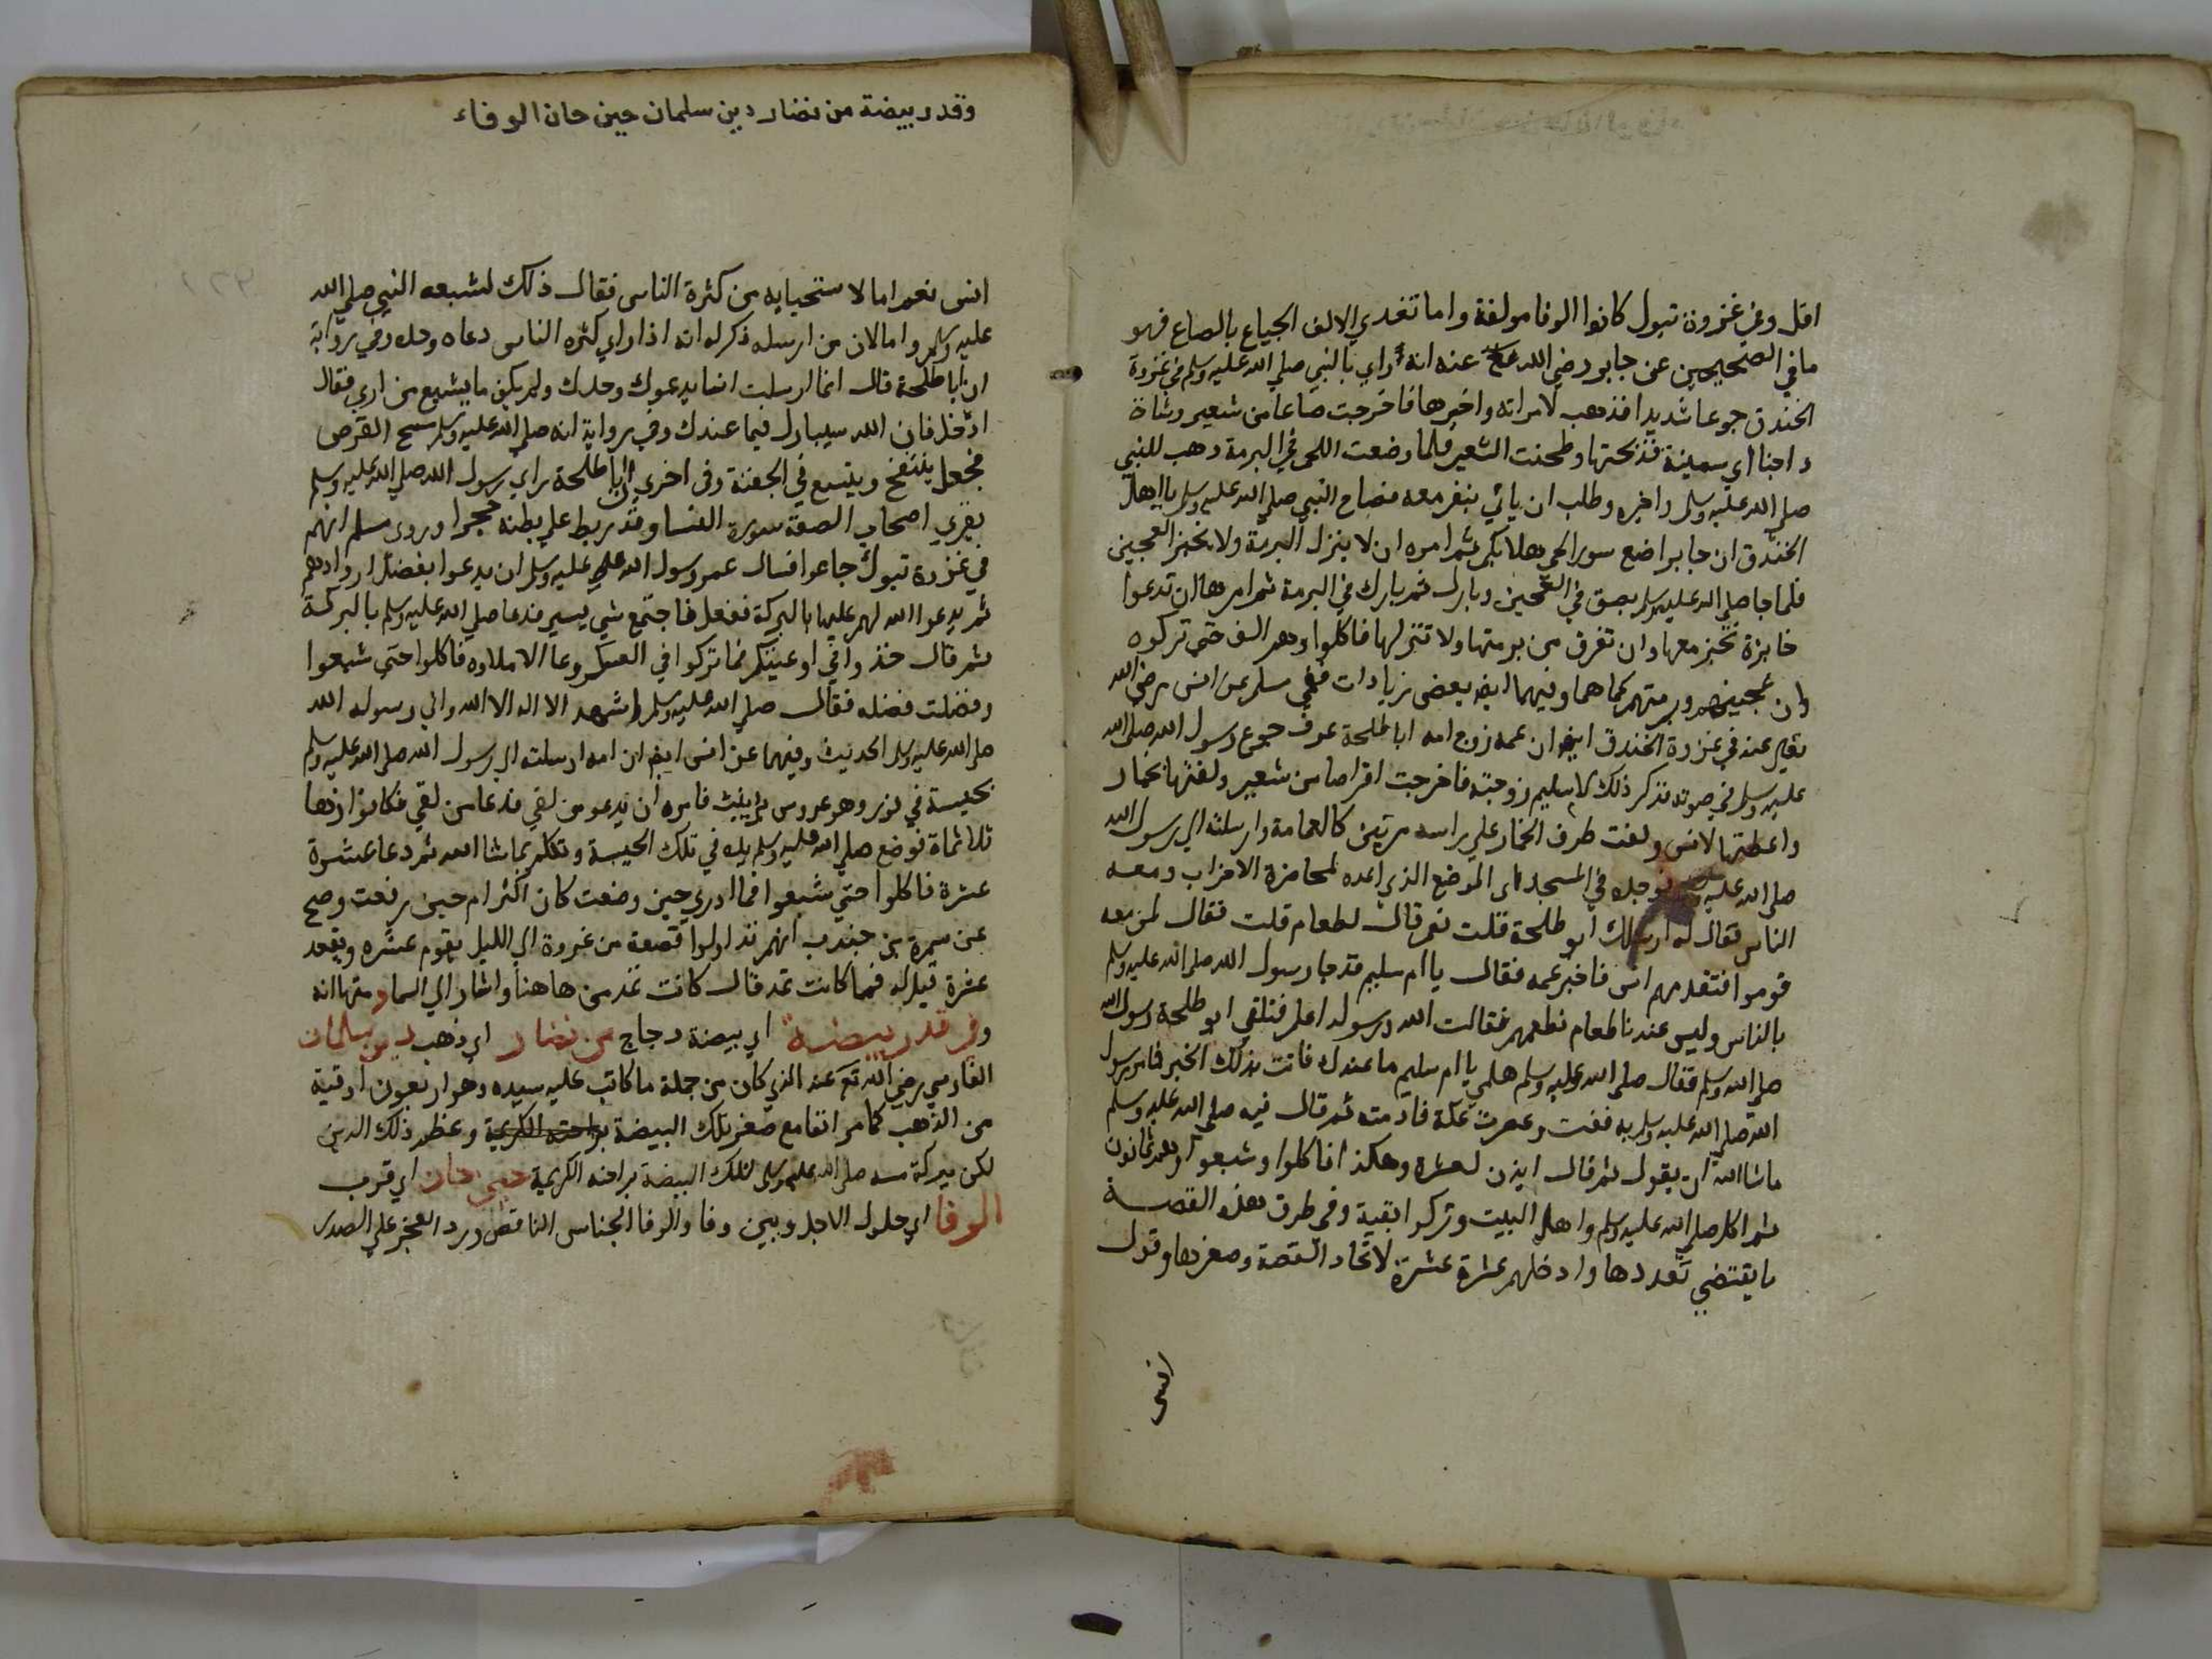 اقل وفي غزوة تبوك كانوا الوفا مولفة واما تغدي الالف الجياع بالصاع فهو
ما في الصحيحين عن جابر رضي الله عنه انه راي بالنبي صلي الله عليه وسلم في غزوة
الخندق جوعا شديدا فذهب لامراته واخبرها فاخرجت صاعا من شعير وشاة
داجنا اي سمينة فذبحتها وطحنت الشعير فلما وضعت اللحم في البرمة ذهب للنبي
صلي الله عليه وسلم واخبره وطلب ان ياتي بنفر معه فصاح النبي صلي الله عليه وسلم يااهل
الخندق ان جابرا صنع سورا فحي هلا بكم ثم امره ان لا ينزل البرمة ولا يخبز العجين
فلما جا صلي الله عليه وسلم بصق في العجين وبارك ثم بارك في البرمة ثم امرها ان تدعوا
خابزة تخبز معها وان تغرف من برمتها ولا تنزلها فاكلوا وهم الف حتي تركوه
وان عجينهم وبرمتهم كما هما وفيهما ايضا بعض زيادات ففي مسلم عن انس رضي الله
تعالي عنه في غزوة الخندق ايضا ان عمه زوج امه ابا طلحة عرف جوع رسول الله صلي الله
عليه وسلم في صوته فذكر ذلك لام سليم زوجته فاخرجت اقراصا من شعير ولفتها بخمار
واعطتها لانس ولفت طرف الخمار علي راسه مرتين كالعمامة وارسلته الي رسول الله
صلي الله عليه وسلم فوجده في المسجد اي الموضع الذي اعده لمحاصرة الاحزاب ومعه
الناس فقال له ارسلك ابو طلحة قلت نعم قال لطعام قلت فقال لمن معه
قوموا فتقدمهم انس فاخبر عمه فقال يا ام سليم قد جا رسول الله صلي الله عليه وسلم
بالناس وليس عندنا طعام نطعمهم فقالت الله ورسوله اعلم فتلقي ابو طلحة رسول الله
صلي الله وسلم فقال صلي الله عليه وسلم هلمي يا ام سليم ما عندك فاتت بذلك الخبز فامر رسول
الله صلي الله عليه وسلم به ففت وعصرت عكة فادمته ثم قال فيه صلي الله عليه وسلم
ماشا الله ان يقول ثم قال ايذن لعشرة وهكذا فاكلوا وشبعوا وهم ثمانون
ثم اكل صلي الله عليه وسلم واهل البيت وتركوا بقية وفي طرق هذه القصة
ما يقتضي تعددها وادخلهم عشرة عشرة لاتحاد القصة وصغرها وقول
انس
وقدر بيضة من نضار دين سلمان حين حان الوفاء
انس نعم اما لاستحيايه من كثرة الناس فقال ذلك لشبعه النبي صلي الله
عليه وسلم واما لان من ارسله ذكر له انه اذا راي كثرة الناس دعاه وحده وفي رواية
ان ابا طلحة قال انما ارسلت انسا يدعوك وحدك ولم يكن ما يشبع من اري فقال
ادخل فان الله سيبارك فيما عندك وفي رواية انه صلي الله عليه وسلم مسح القرص
فجعل ينتفخ ويتسع في الجفنة وفي اخري ان ابا طلحة راي رسول الله صلي الله عليه وسلم
يقري اصحاب الصفة سورة النسا وقد ربط علي بطنه حجرا وروي مسلم انهم
في غزوة تبوك جاعوا فسال عمر رسول الله عليه وسلم ان يدعوا بفضل ازوادهم
ثم يدعوا الله لهم عليها بالبركة ففعل فاجتمع شي يسير فدعا صلي الله عليه وسلم بالبركة
ثم قال خذوا في اوعيتكم فما تركوا في العسكر وعا الا ملاوه فاكلوا حتي شبعوا
وفضلت فضله فقال صلي الله عليه وسلم اشهد الا اله الا الله واني رسوله الله
صلي الله عليه وسلم الحديث وفيهما عن انس ايضا ان امه ارسلته الي رسول الله صلي الله عليه وسلم
بحيسة في تور وهو عروس بزينب فامره ان يدعو من لقي فدعا من لقي فكانوا زها
ثلاثماة فوضع صلي الله عليه وسلم يده في تلك الحيسة وتكلم بماشا الله ثم دعا عشرة
عشرة فاكلوا حتي شبعوا فما ادري حين وضعت كان اكثر ام حين رفعت وصح
عن سمرة بن جندب انهم تداولوا قصعة من غدوة الي الليل يقوم عشره ويقعد
عشرة قيل له فما كانت تمد قال كانت تمد من هاهنا واشار الي السما ومنها انه
وفي قدر بيضة اي بيضة دجاج من نضار اي ذهب دين سلمان
الفارسي رضي الله تع عنه الذي كان من جملة ما كاتب عليه سيده وهو اربعون اوقية
من الذهب كما مر انفا مع صغر تلك البيضة براحته الكريمة وعظم ذلك الدين
لكن ببركة مسه صلي الله عليه وسلم لتلك البيضة براحته الكريمة حين حان اي قرب
الوفا اي حلول الاجل وبين وفا والوفا الجناس الناقص ورد العجز علي الصدر